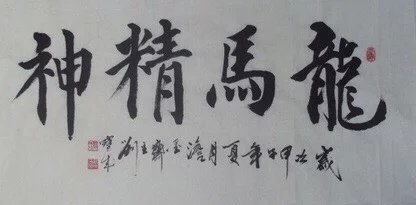 龍馬精神
歲次甲午年夏月澹